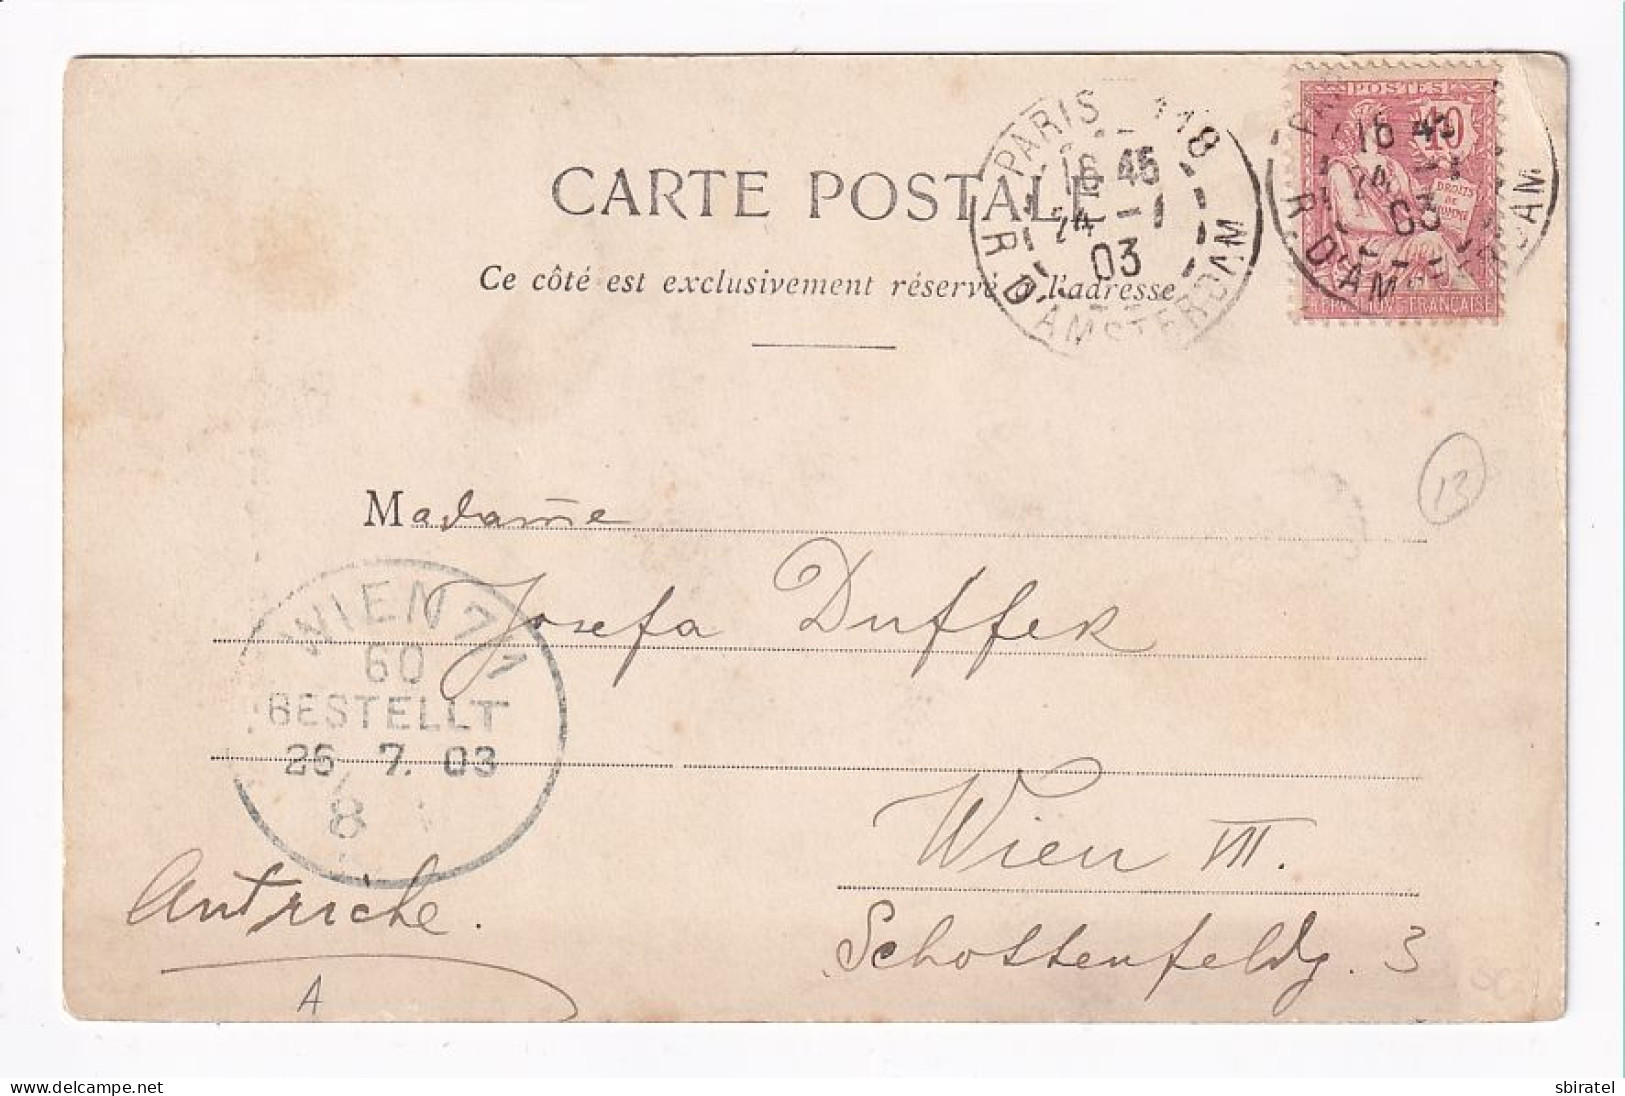 CARTE POSTALE
Ce côté est exclusivement réservé à l'adresse
PARIS 118
16 45
24 -1
03
R. D'AMSTERDAM
POSTES
10
DROITS
DE
REPUBLIQUE FRANÇAISE
16 45
24
03
R. D'AM DAM
13
Madame
Josefa Duffek
WIEN 7/1
60
BESTELLT
26 7. 03
8
Wien VII.
Schottenfeldg. 3
Autriche.
A
sbiratel